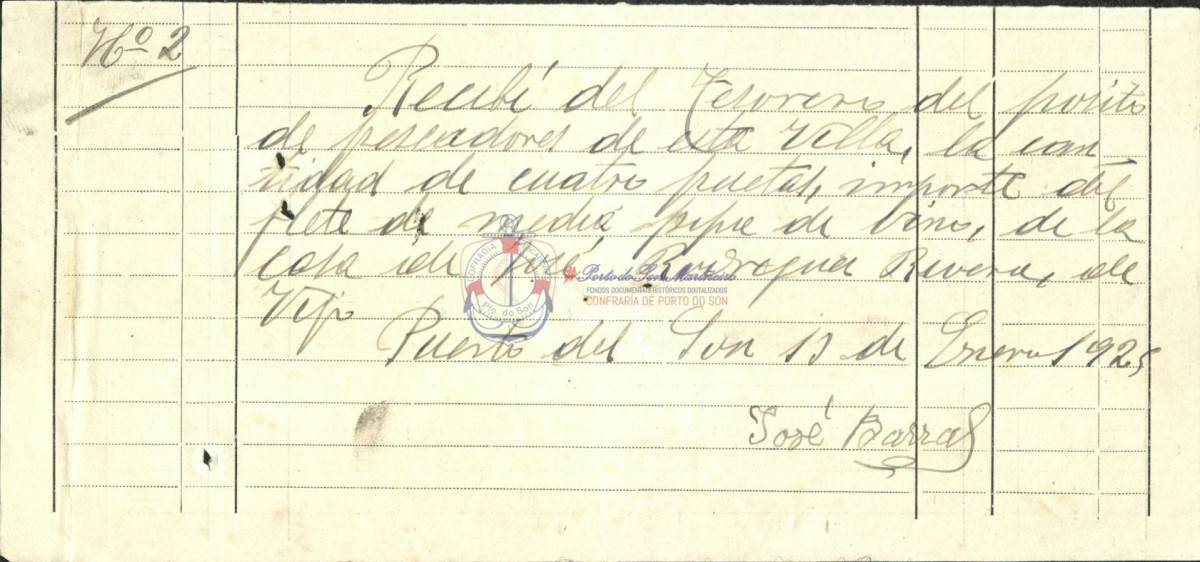 Nº 2
Recibí del Tesorero del posito
de pescadores de esta Villa, la can
tidad de cuatro pesetas, importe del
flete de media pipa de vino, de la
casa de José Rodriguez Rivera, de
Vigo
Puerto del Son 13 de Enero 1925
José Barral
COFRADIA
Pto. do Son
Porto do Son Mariñeiro
FONDOS DOCUMENTAIS HISTÓRICOS DIXITALIZADOS
CONFRARÍA DE PORTO DO SON